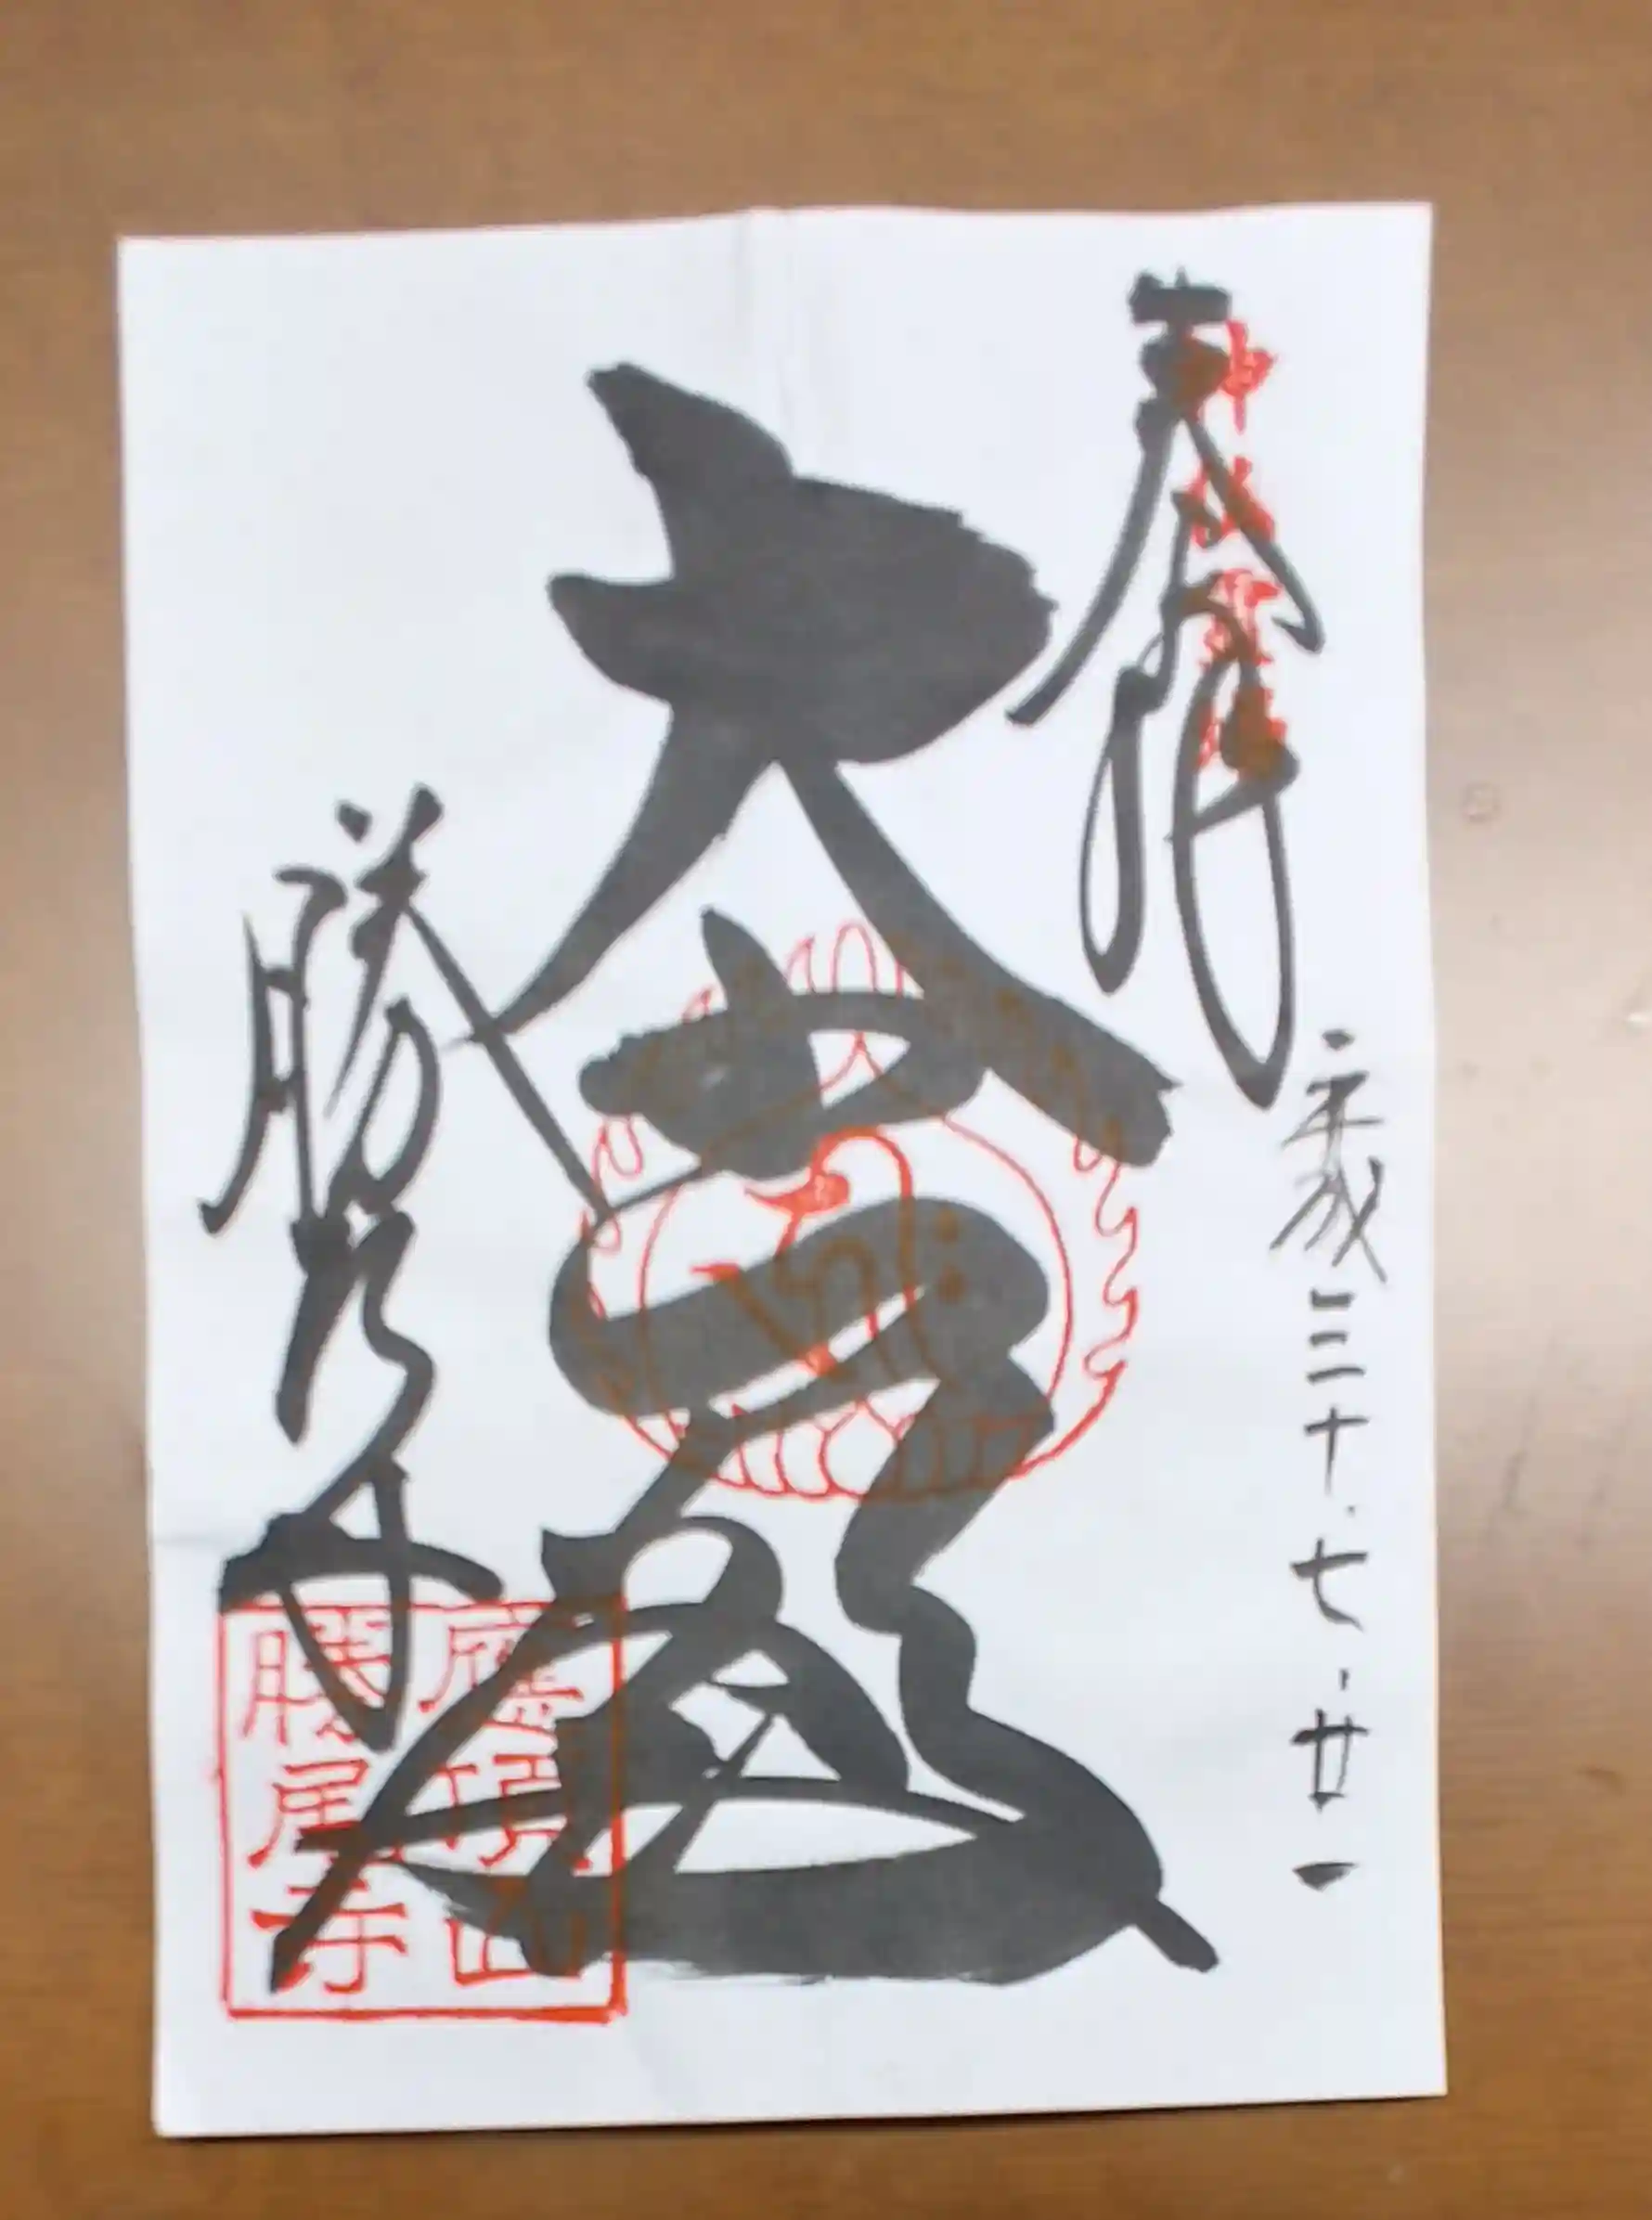 奉拝
平成三十.七.廿一
大
勝尾寺
應頂山
勝尾寺